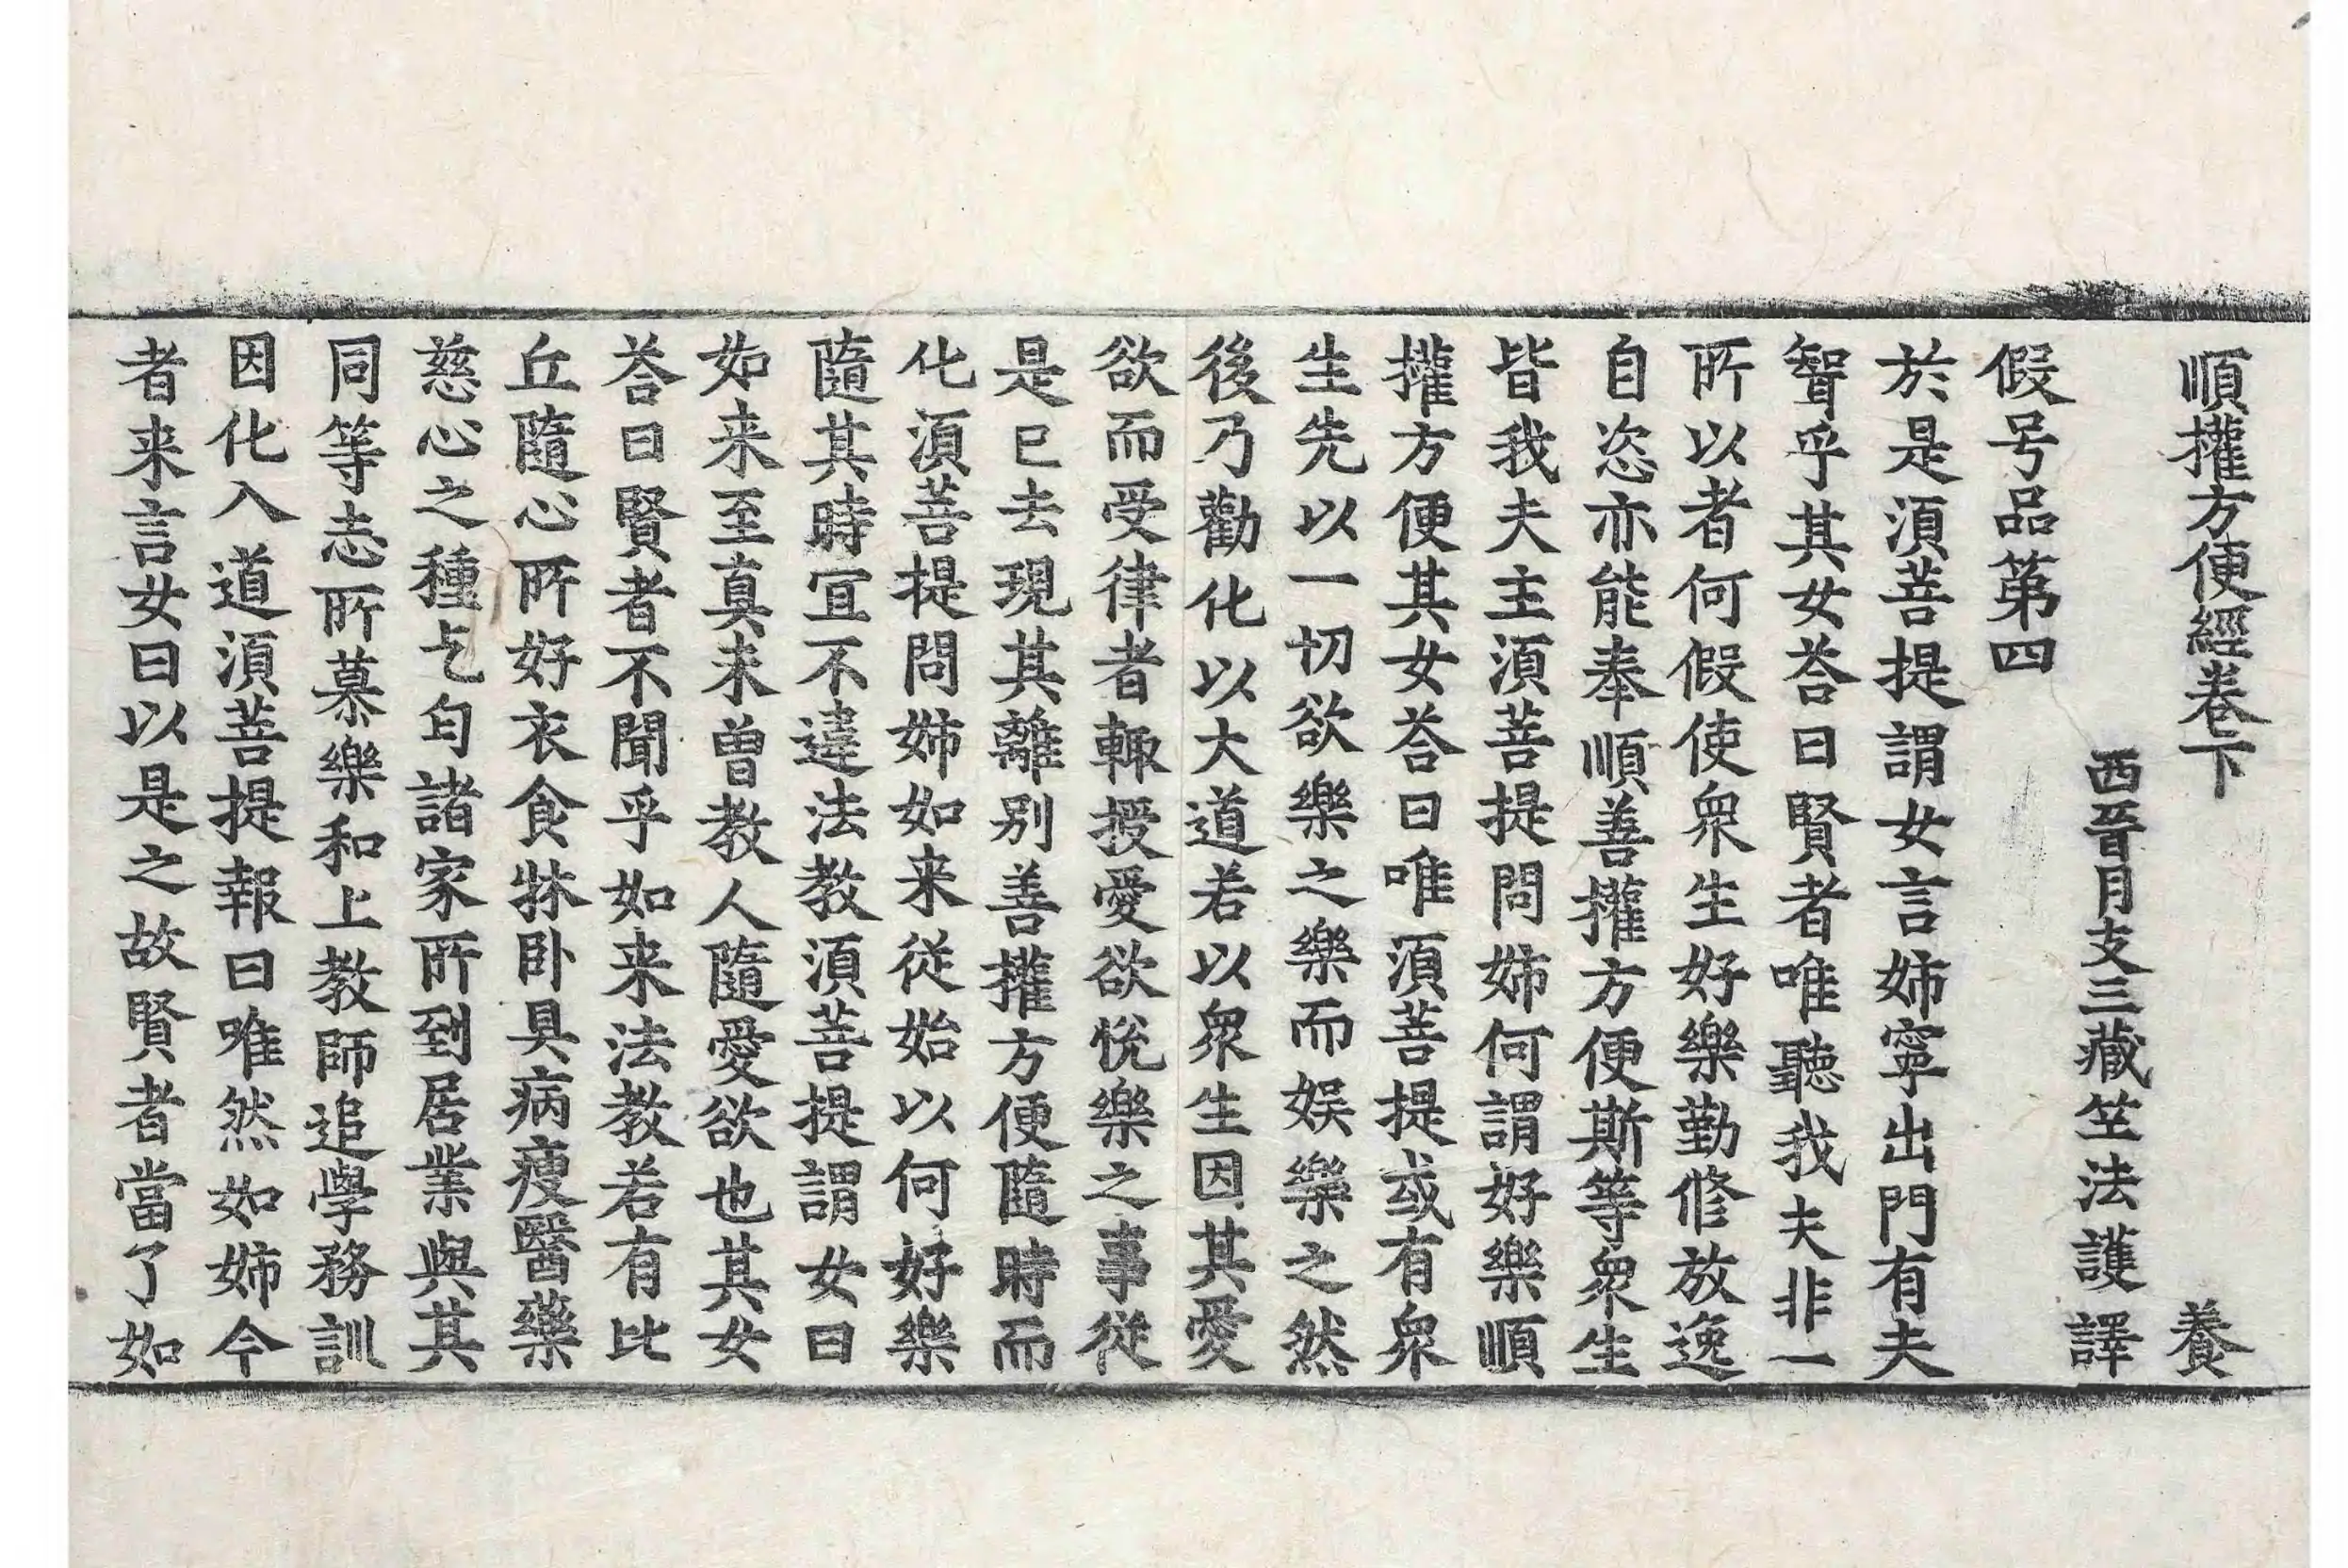 順權方便經卷下　養
西晉月支三藏竺法護譯
假号品第四
於是須菩提謂女言姊寧出門有夫
聟乎其女荅曰賢者唯聽我夫非一
所以者何假使衆生好樂勤修放逸
自恣亦能奉順善權方便斯等衆生
皆我夫主須菩提問姊何謂好樂順
權方便其女荅曰唯須菩提或有衆
生先以一切欲樂之樂而娛樂之然
後乃勸化以大道若以衆生因其愛
欲而受律者輙授愛欲悅樂之事從
是已去現其離別善權方便隨時而
化須菩提問姊如来從始以何好樂
隨其時宜不違法教須菩提謂女曰
如来至真未曾教人隨愛欲也其女
荅曰賢者不聞乎如来法教若有比
丘隨心所好衣食牀卧具病瘦醫藥
慈心之種乞匃諸家所到居業與其
同等志所慕樂和上教師追學務訓
因化入道須菩提報曰唯然如姊今
者来言女曰以是之故賢者當了如